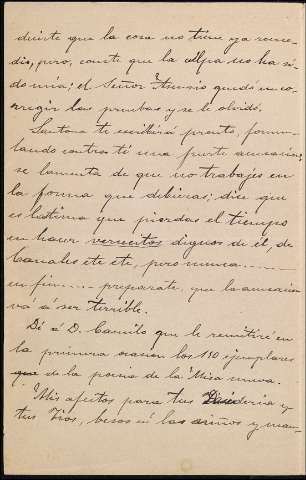 decirte que la cosa no tiene ya reme-
dio, pero, conste que la culpa no ha si-
do mia; el Señor Asensio quedó en co-
rregir las pruebas y se le olvidó.
Santana te escribirá pronto, formu-
lando contra ti una fuerte acusación;
se lamenta de que no trabajes en
la forma que debieras; dice que
es lástima que pierdas el tiempo
en hacer versitos dignos de él, de
Canales etc etc, pero nunca
en fin preparate, que la acusación
vá á ser terrible.
Dí á D. Camilo que le remitiré en
la primera ocasion los 150 ejemplares
de la poesia de la Misa nueva.
Mis afectos para tus y
tus Tios, besos á los niños y man-